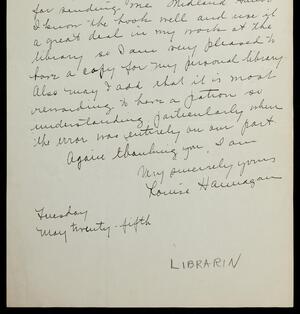 for sending me "Midland
I know the book well and use it
a great deal in my work at the
library so I am very pleased to
have a copy for my personal library.
Also may I add that it is most
rewarding to have a patron so
understanding, particularly when
the error was entirely on our part
Again thanking you, I am
Very sincerely yours
Louise Hannagan
Tuesday
May twenty-fifth
LIBRARIN